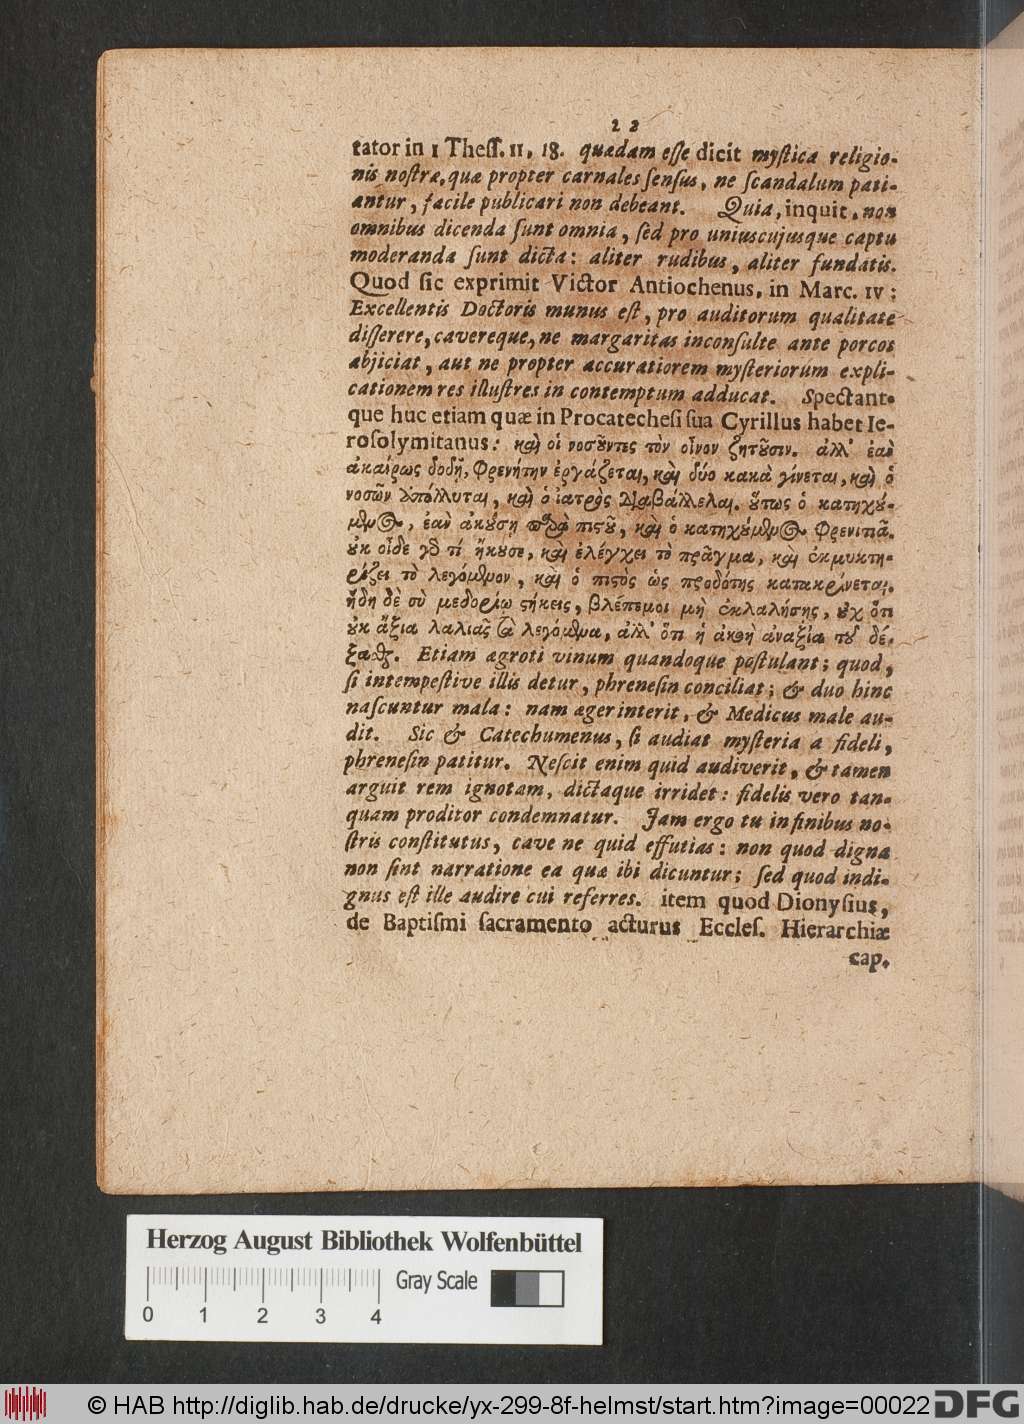 22
tator in 1 Thess. II, 18. quædam esse dicit mystica religio-
nis nostræ, quæ propter carnales sensus, ne scandalum pati-
antur, facile publicari non debeant. Quia, inquit, non
omnibus dicenda sunt omnia, sed pro uniuscujusque captu
moderanda sunt dicta: aliter rudibus, aliter fundatis.
Quod sic exprimit Victor Antiochenus, in Marc. IV:
Excellentis Doctoris munus est, pro auditorum qualitate
disserere, cavereque, ne margaritas inconsulte ante porcos
abjiciat, aut ne propter accuratiorem mysteriorum expli-
cationem res illustres in contemptum adducat. Spectant-
que huc etiam quæ in Procatechesi sua Cyrillus habet Ie-
rosolymitanus: καὶ οἱ νοσοῦντες τὸν οἶνον ζητοῦσιν. ἀλλ' ἐὰν
ἀκαίρως δοθῇ, φρενήτην ἐργάζεται, καὶ δύο κακὰ γίνεται, καὶ ὁ
νοσῶν ἀπόλλυται, καὶ ὁ ἰατρὸς διαβάλλεται. οὕτως ὁ κατηχού-
μενος, ἐὰν ἀκούσῃ παρὰ πιστοῦ, καὶ ὁ κατηχούμενος φρενιτιᾷ.
οὐκ οἶδε γὰρ τί ἤκουσε, καὶ ἐλέγχει τὸ πρᾶγμα, καὶ ἐκμυκτη-
ρίζει τὸ λεγόμενον, καὶ ὁ πιστὸς ὡς προδότης κατακρίνεται.
ἤδη δὲ σὺ μεθορίῳ στήκεις, βλέπε μοι μὴ ἐκλαλήσης, οὐχ ὅτι
οὐκ ἄξια λαλιᾶς τὰ λεγόμενα, ἀλλ' ὅτι ἡ ἀκοὴ ἀναξία τοῦ δέ-
ξασθαι. Etiam ægroti vinum quandoque postulant; quod,
si intempestive illis detur, phrenesin conciliat; & duo hinc
nascuntur mala: nam æger interit, & Medicus male au-
dit. Sic & Catechumenus, si audiat mysteria a fideli,
phrenesin patitur. Nescit enim quid audiverit, & tamen
arguit rem ignotam, dictaque irridet: fidelis vero tan-
quam proditor condemnatur. Jam ergo tu in finibus no-
stris constitutus, cave ne quid effutias: non quod digna
non sint narratione ea quæ ibi dicuntur; sed quod indi-
gnus est ille audire cui referres. item quod Dionysius,
de Baptismi sacramento acturus Eccles. Hierarchiæ
cap.
Herzog August Bibliothek Wolfenbüttel
Gray Scale
0 1 2 3 4
© HAB http://diglib.hab.de/drucke/yx-299-8f-helmst/start.htm?image=00022
DFG